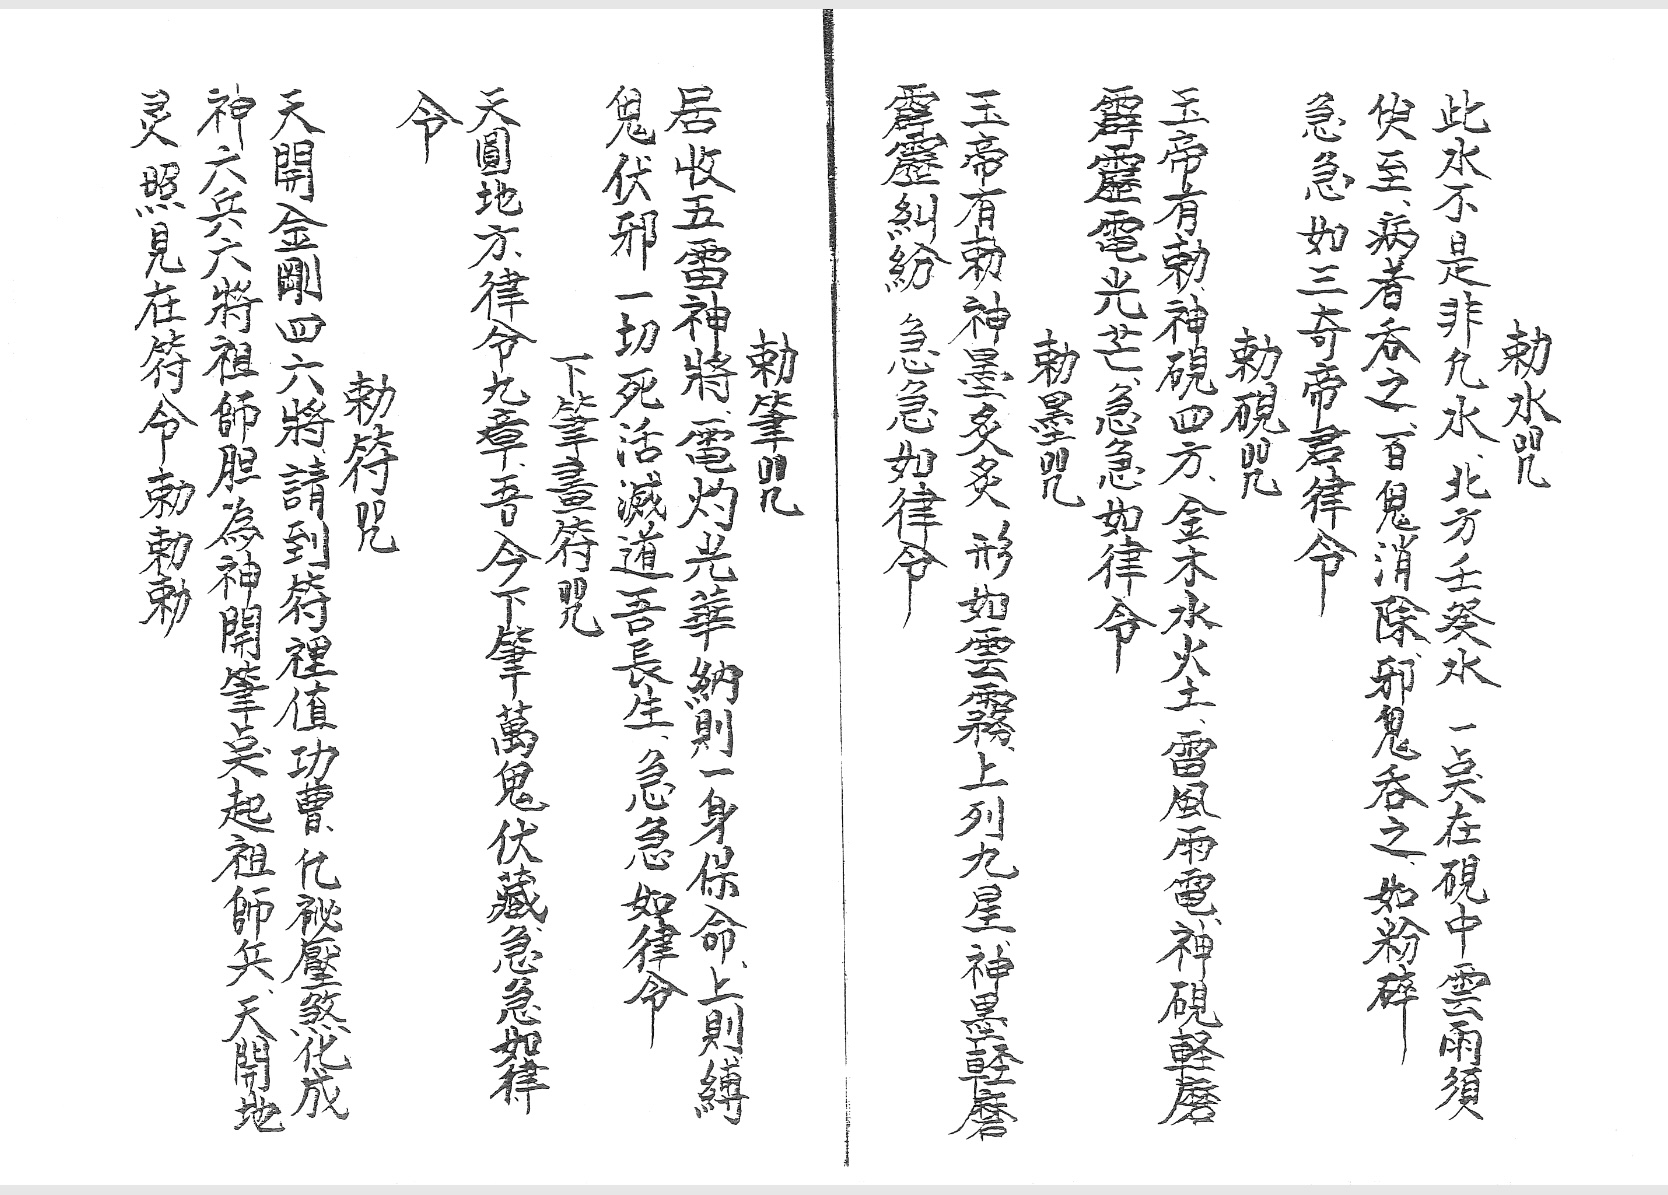 勅水咒
此水不是非凢水、北方壬癸水 一点在硯中雲雨須
臾至、病者吞之、百鬼消除、邪鬼吞之、如粉碎
急急如三奇帝君律令
勅硯咒
玉帝有勅、神硯四方、金木水火土、雷風雨電、神硯軽磨
霹靂電光芒、急急如律令
勅墨咒
玉帝有勅神墨炙炙 形如雲霧、上列九星、神墨軽磨
霹靂糾紛 急急如律令
勅筆咒
居收五雷神將、電灼光華納則一身保命、上則縛
鬼伏邪 一切死活滅道吾長生、急急如律令
下筆畫符咒
天圓地方、律令九章、吾今下筆萬鬼伏藏、急急如律
令
勅符咒
天開金剛四六將、請到符裡值功曹、化祕壓煞化成
神六兵六將祖師胆為神開筆点起祖師兵、天開地
灵照見在符令勅勅勅